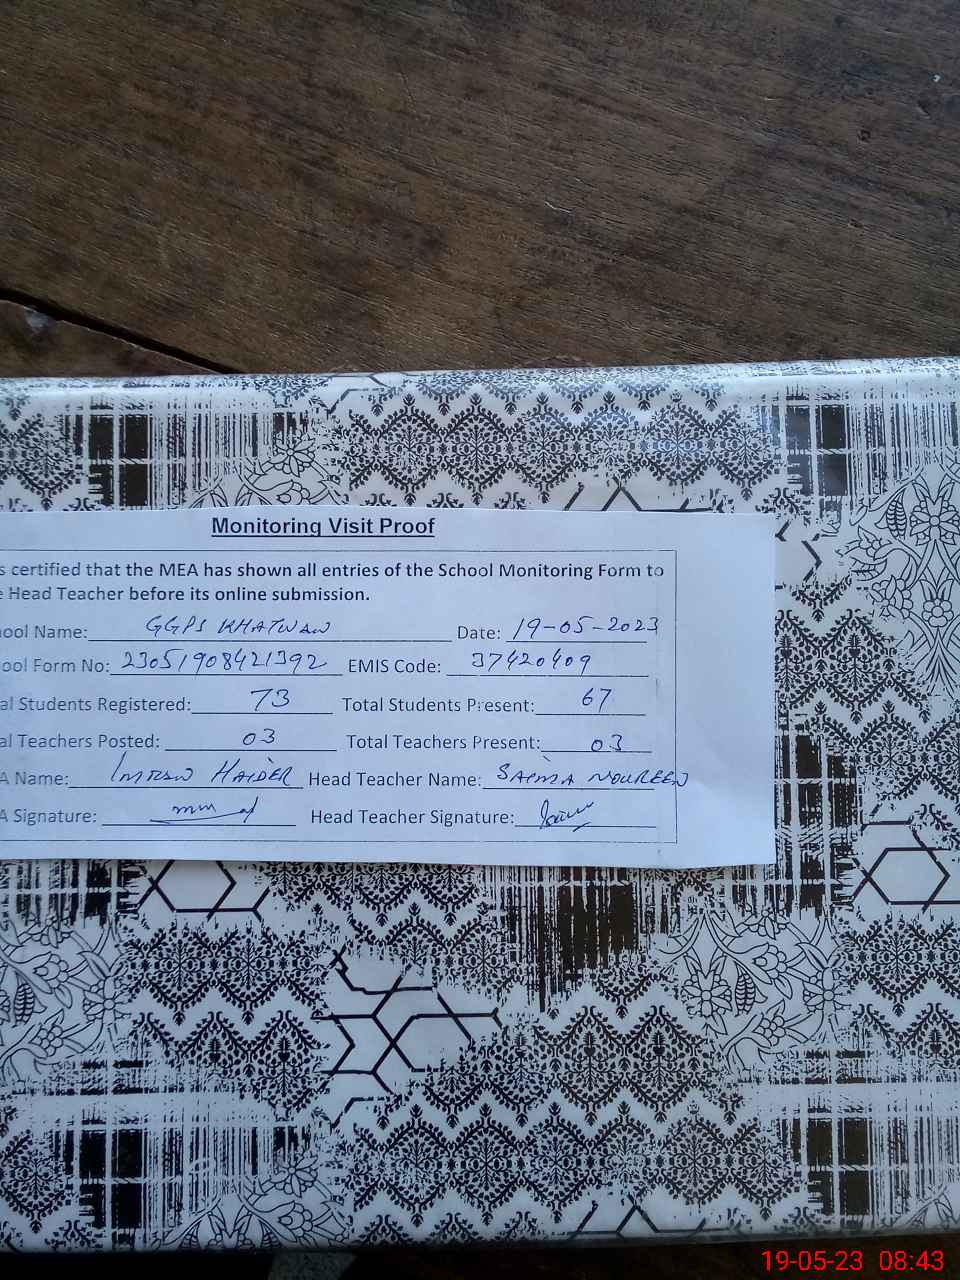 Monitoring Visit Proof
s certified that the MEA has shown all entries of the School Monitoring Form to
e Head Teacher before its online submission.
ool Name: GGPS KHATWAN Date: 19-05-2023
ool Form No: 23051908421392 EMIS Code: 37420409
al Students Registered: 73 Total Students Present: 67
al Teachers Posted: 03 Total Teachers Present: 03
A Name: IMRAN HAIDER Head Teacher Name: SAIMA NOUREEN
A Signature: Head Teacher Signature:
19-05-23 08:43